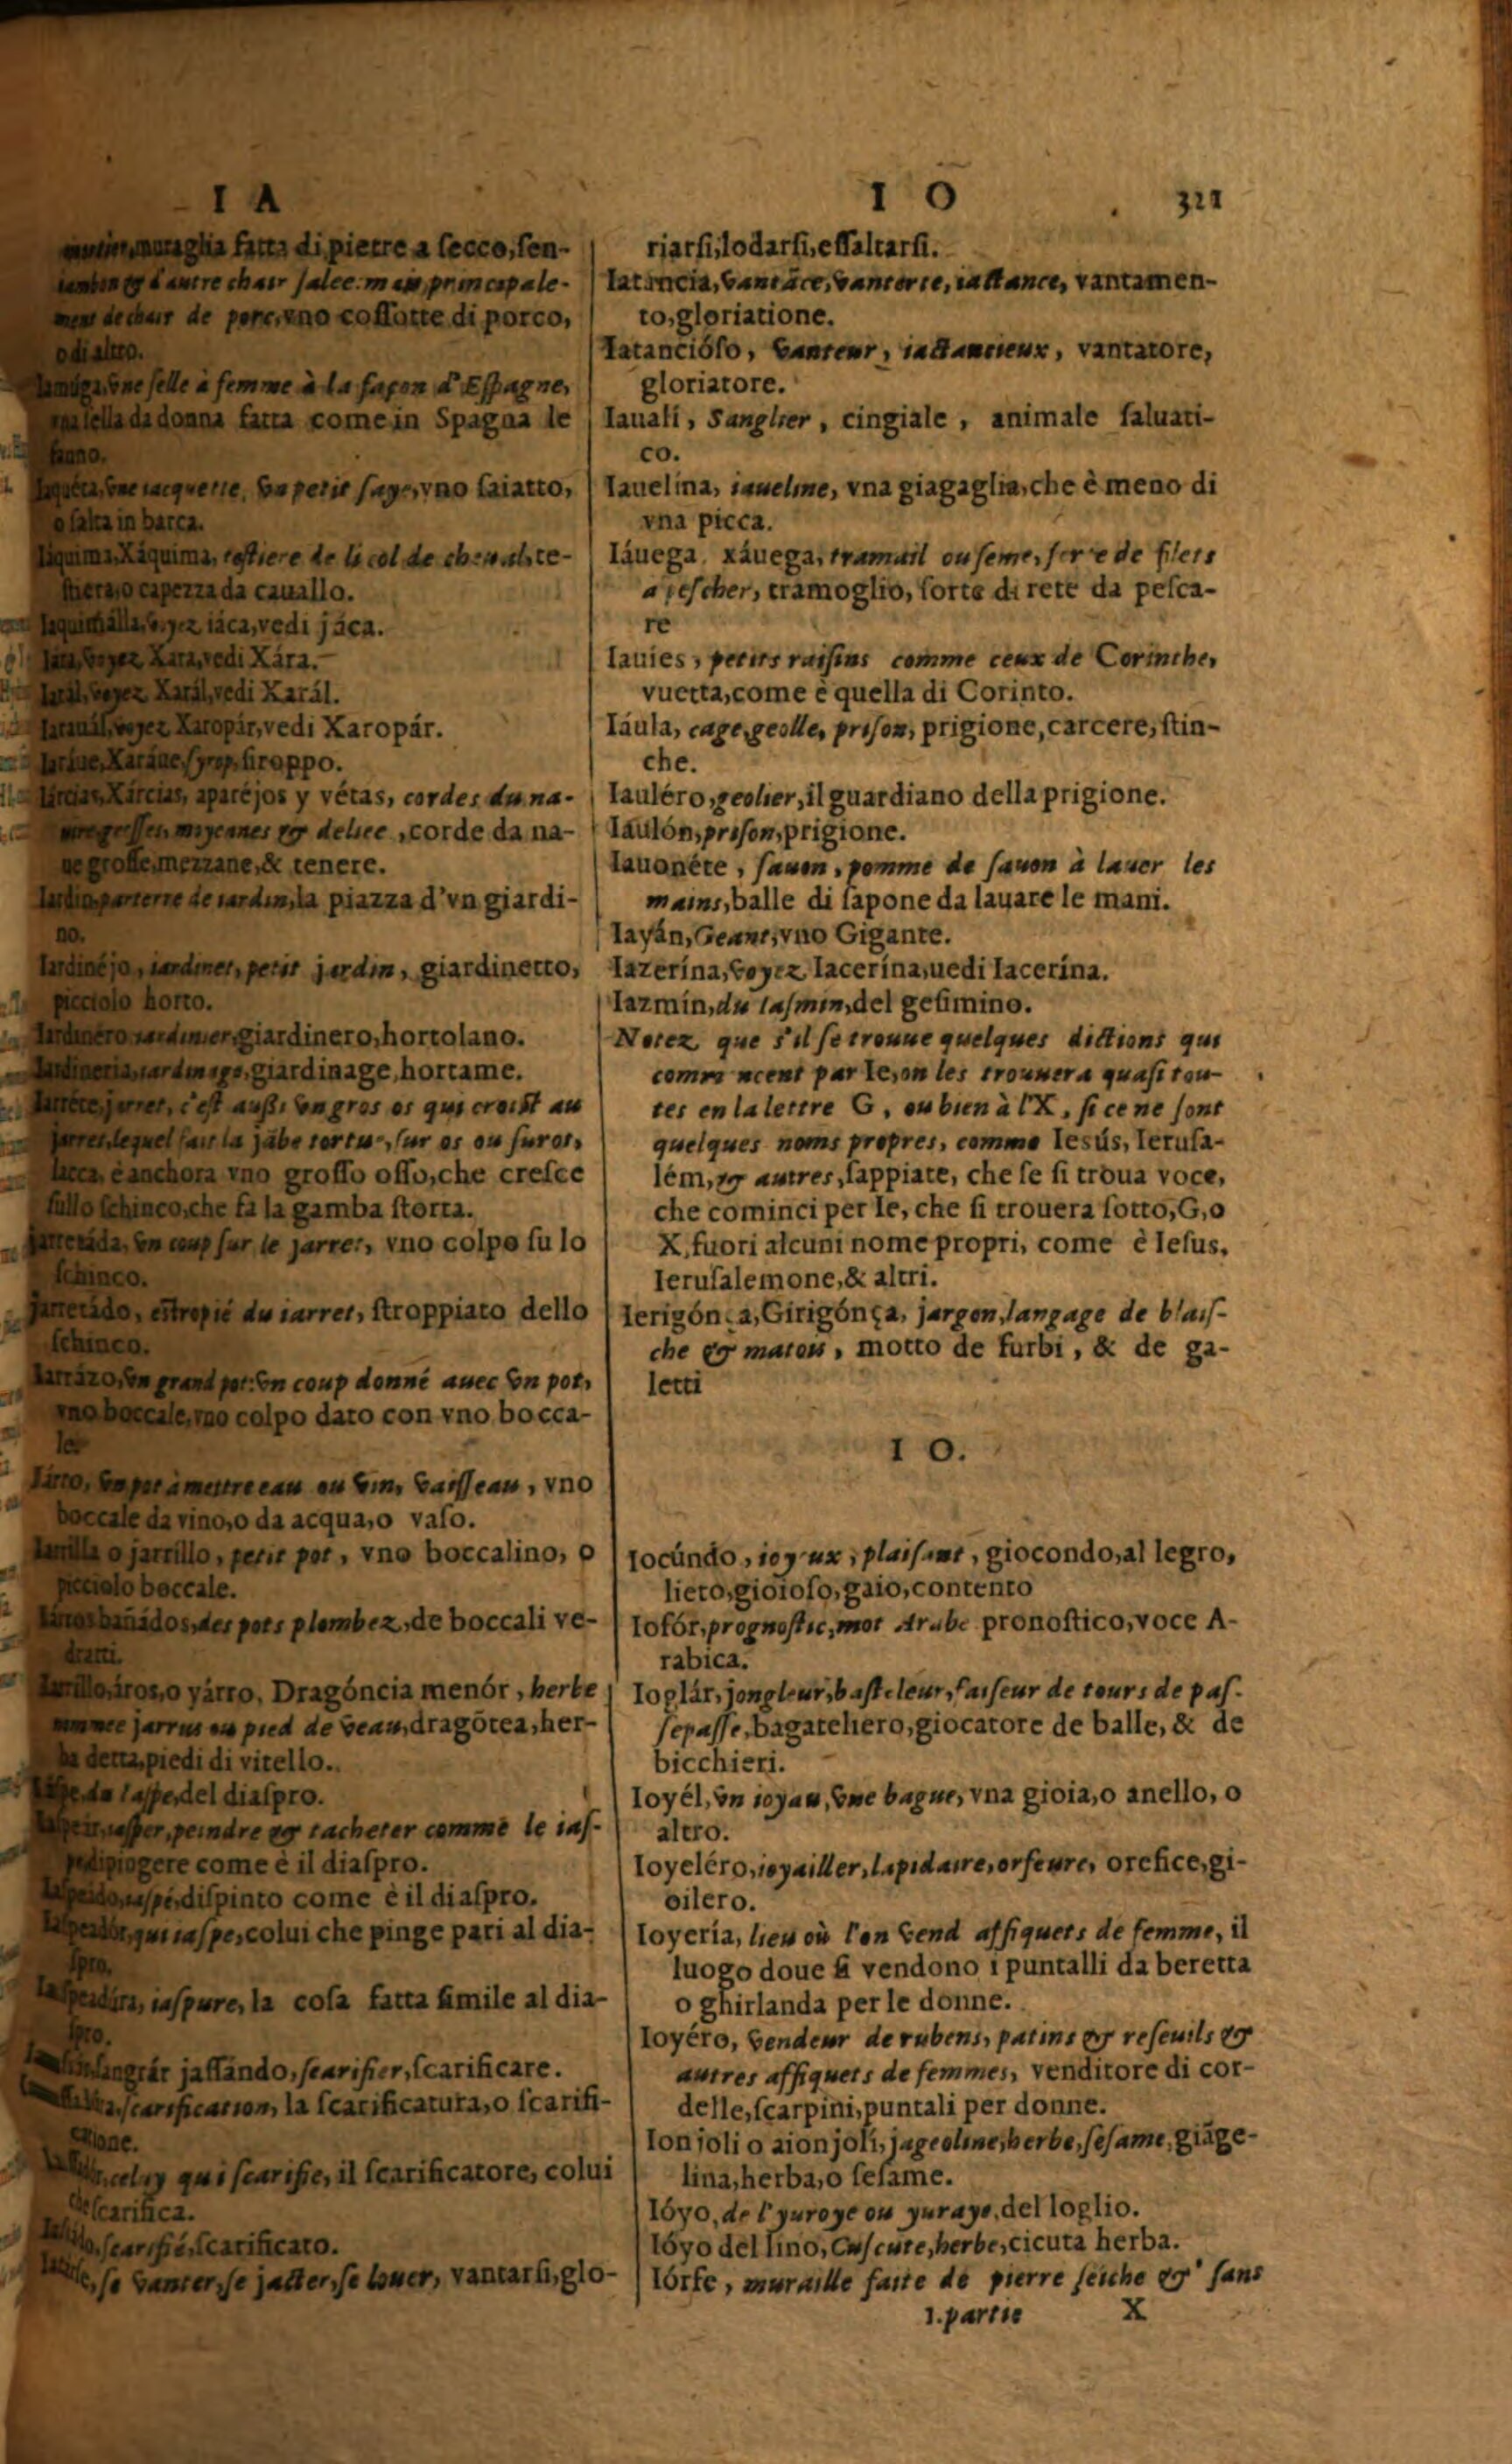 I A
I O 321
muraglia fatta di pietre a ſecco, ſen-
iambon & d'autre chair ſalee: mais principale-
ment de chair de porc, vno coſſotte di porco,
o di altro.
Iamúga, vne ſelle à femme à la façon d'Eſpagne,
vna ſella da donna fatta come in Spagna le
fanno.
Iaquéta, vne iacquette, vn petit ſaye, vno ſaiatto,
o ſalta in barca.
Iáquima, Xáquima, teſtiere de licol de cheual, te-
ſtiera, o capezza da cauallo.
voyez iáca, vedi jáca.
Iára, voyez Xara, vedi Xára.
Iarál, voyez Xarál, vedi Xarál.
voyez Xaropár, vedi Xaropár.
Xaráue, ſyrop, ſiroppo.
Iárcias, Xárcias, aparéjos y vétas, cordes du na-
uire groſſes, moyennes & deliee, corde da na-
ue groſſe, mezzane, & tenere.
Iardin, parterre de iardin, la piazza d'vn giardi-
no.
Iardinéjo, iardinet, petit jardin, giardinetto,
picciolo horto.
Iardinéro iardinier, giardinero, hortolano.
Iardinería, iardinage, giardinage, hortame.
Iarréte, jarret, c'eſt auſſi vn gros os qui croiſt au
jarret, lequel fait la jābe tortue, ſur os ou ſuros,
lacca, è anchora vno groſſo oſſo, che creſce
ſullo ſchinco, che fa la gamba ſtorta.
Iarretáda, vn coup ſur le jarret, vno colpo ſu lo
ſchinco.
Iarretádo, eſtropié du iarret, ſtroppiato dello
ſchinco.
Iarrázo, vn grand pot: vn coup donné auec vn pot,
vno boccale, vno colpo dato con vno bocca-
le
Iárro, vn pot à mettre eau ou vin, vaiſſeau, vno
boccale da vino, o da acqua, o vaſo.
Iarrilla o jarrillo, petit pot, vno boccalino, o
picciolo boccale.
Iárros bañados, des pots plombez, de boccali ve-
drati.
Iarrillo, áros, o yárro, Dragóncia menór, herbe
nommee jarrus ou pied de veau, dragōtea, her-
ba detta, piedi di vitello.
du Iaſpe, del diaſpro.
iaſper, peindre & tacheter comme le iaſ-
pe dipingere come è il diaſpro.
iaſpé, diſpinto come è il diaſpro.
Iaſpeadór, qui iaſpe, colui che pinge pari al dia-
ſpro.
Iaſpeadúra, iaſpure, la coſa fatta ſimile al dia-
ſpro.
ſangrár jaſſándo, ſcarifier, ſcarificare.
ſcarification, la ſcarificatura, o ſcarifi-
catione.
celuy qui ſcarifie, il ſcarificatore, colui
che ſcarifica.
ſcarifié, ſcarificato.
ſe vanter, ſe jacter, ſe louer, vantarſi, glo-
riarſi, lodarſi, eſſaltarſi.
Iatáncia, vantāce, vanterie, iactance, vantamen-
to, gloriatione.
Iatancióſo, vanteur, iactancieux, vantatore,
gloriatore.
Iaualí, Sanglier, cingiale, animale ſaluati-
co.
Iauelína, iaueline, vna giagaglia, che è meno di
vna picca.
Iáuega, xáuega, tramail ou ſeme, ſorte de filets
a peſcher, tramoglio, ſorte di rete da peſca-
re
Iauies, petits raiſins comme ceux de Corinthe,
vuetta, come è quella di Corinto.
Iáula, cage, geolle, priſon, prigione, carcere, ſtin-
che.
Iauléro, geolier, il guardiano della prigione.
Iaulón, priſon, prigione.
Iauonéte, ſauon, pomme de ſauon à lauer les
mains, balle di ſapone da lauare le mani.
Iayán, Geant, vno Gigante.
Iazerína, voyez Iacerína, uedi Iacerína.
Iazmín, du Iaſmin, del geſimino.
Notez que s'il ſe trouue quelques dictions qui
commencent par Ie, on les trouuera quaſi tou-
tes en la lettre G, ou bien à l'X, ſi ce ne ſont
quelques noms propres, comme Ieſús, Ieruſa-
lém, & autres, ſappiate, che ſe ſi troua voce,
che cominci per Ie, che ſi trouera ſotto, G, o
X, fuori alcuni nome propri, come è Ieſus,
Ieruſalemone, & altri.
Ierigónça, Girigónça, jargon, langage de blaiſ-
che & matois, motto de furbi, & de ga-
letti
I O.
Iocúndo, ioyeux, plaiſant, giocondo, al legro,
lieto, gioioſo, gaio, contento
Iofór, prognoſtic, mot Arabe pronoſtico, voce A-
rabica.
Ioglár, jongleur, baſteleur, faiſeur de tours de paſ-
ſepaſſe, bagatehero, giocatore de balle, & de
bicchieri.
Ioyél, vn ioyau, vne bague, vna gioia, o anello, o
altro.
Ioyeléro, ioyaillier, lapidaire, orfeure, orefice, gi-
oilero.
Ioyería, lieu où l'on vend affiquets de femme, il
luogo doue ſi vendono i puntalli da beretta
o ghirlanda per le donne.
Ioyéro, vendeur de rubens, patins & reſeuils &
autres affiquets de femmes, venditore di cor-
delle, ſcarpini, puntali per donne.
Ionjoli o aionjolí, jugeoline, herbe, ſeſame, giāge-
lina, herba, o ſeſame.
Ióyo, de l'yuroye ou yuraye, del loglio.
Ióyo del lino, Cuſcute, herbe, cicuta herba.
Iórfe, muraille faite de pierre ſeiche & ſans
1. partie X